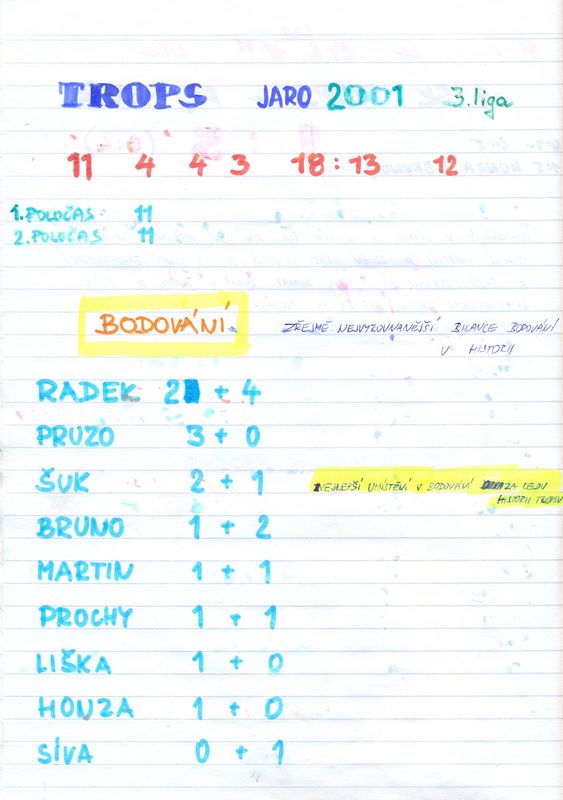 TROPS JARO 2001 3.liga
11 4 4 3 18:13 12
1. POLOČAS 11
2. POLOČAS 11
BODOVÁNÍ
ZŘEJMĚ NEJVYROVNANĚJŠÍ BILANCE BODOVÁNÍ
V HISTORII
RADEK 2 + 4
PRUZO 3 + 0
ŠUK 2 + 1
NEJLEPŠÍ UMÍSTĚNÍ V BODOVÁNÍ ZA CELOU
HISTORII TROPSU
BRUNO 1 + 2
MARTIN 1 + 1
PROCHY 1 + 1
LIŠKA 1 + 0
HONZA 1 + 0
SÍVA 0 + 1